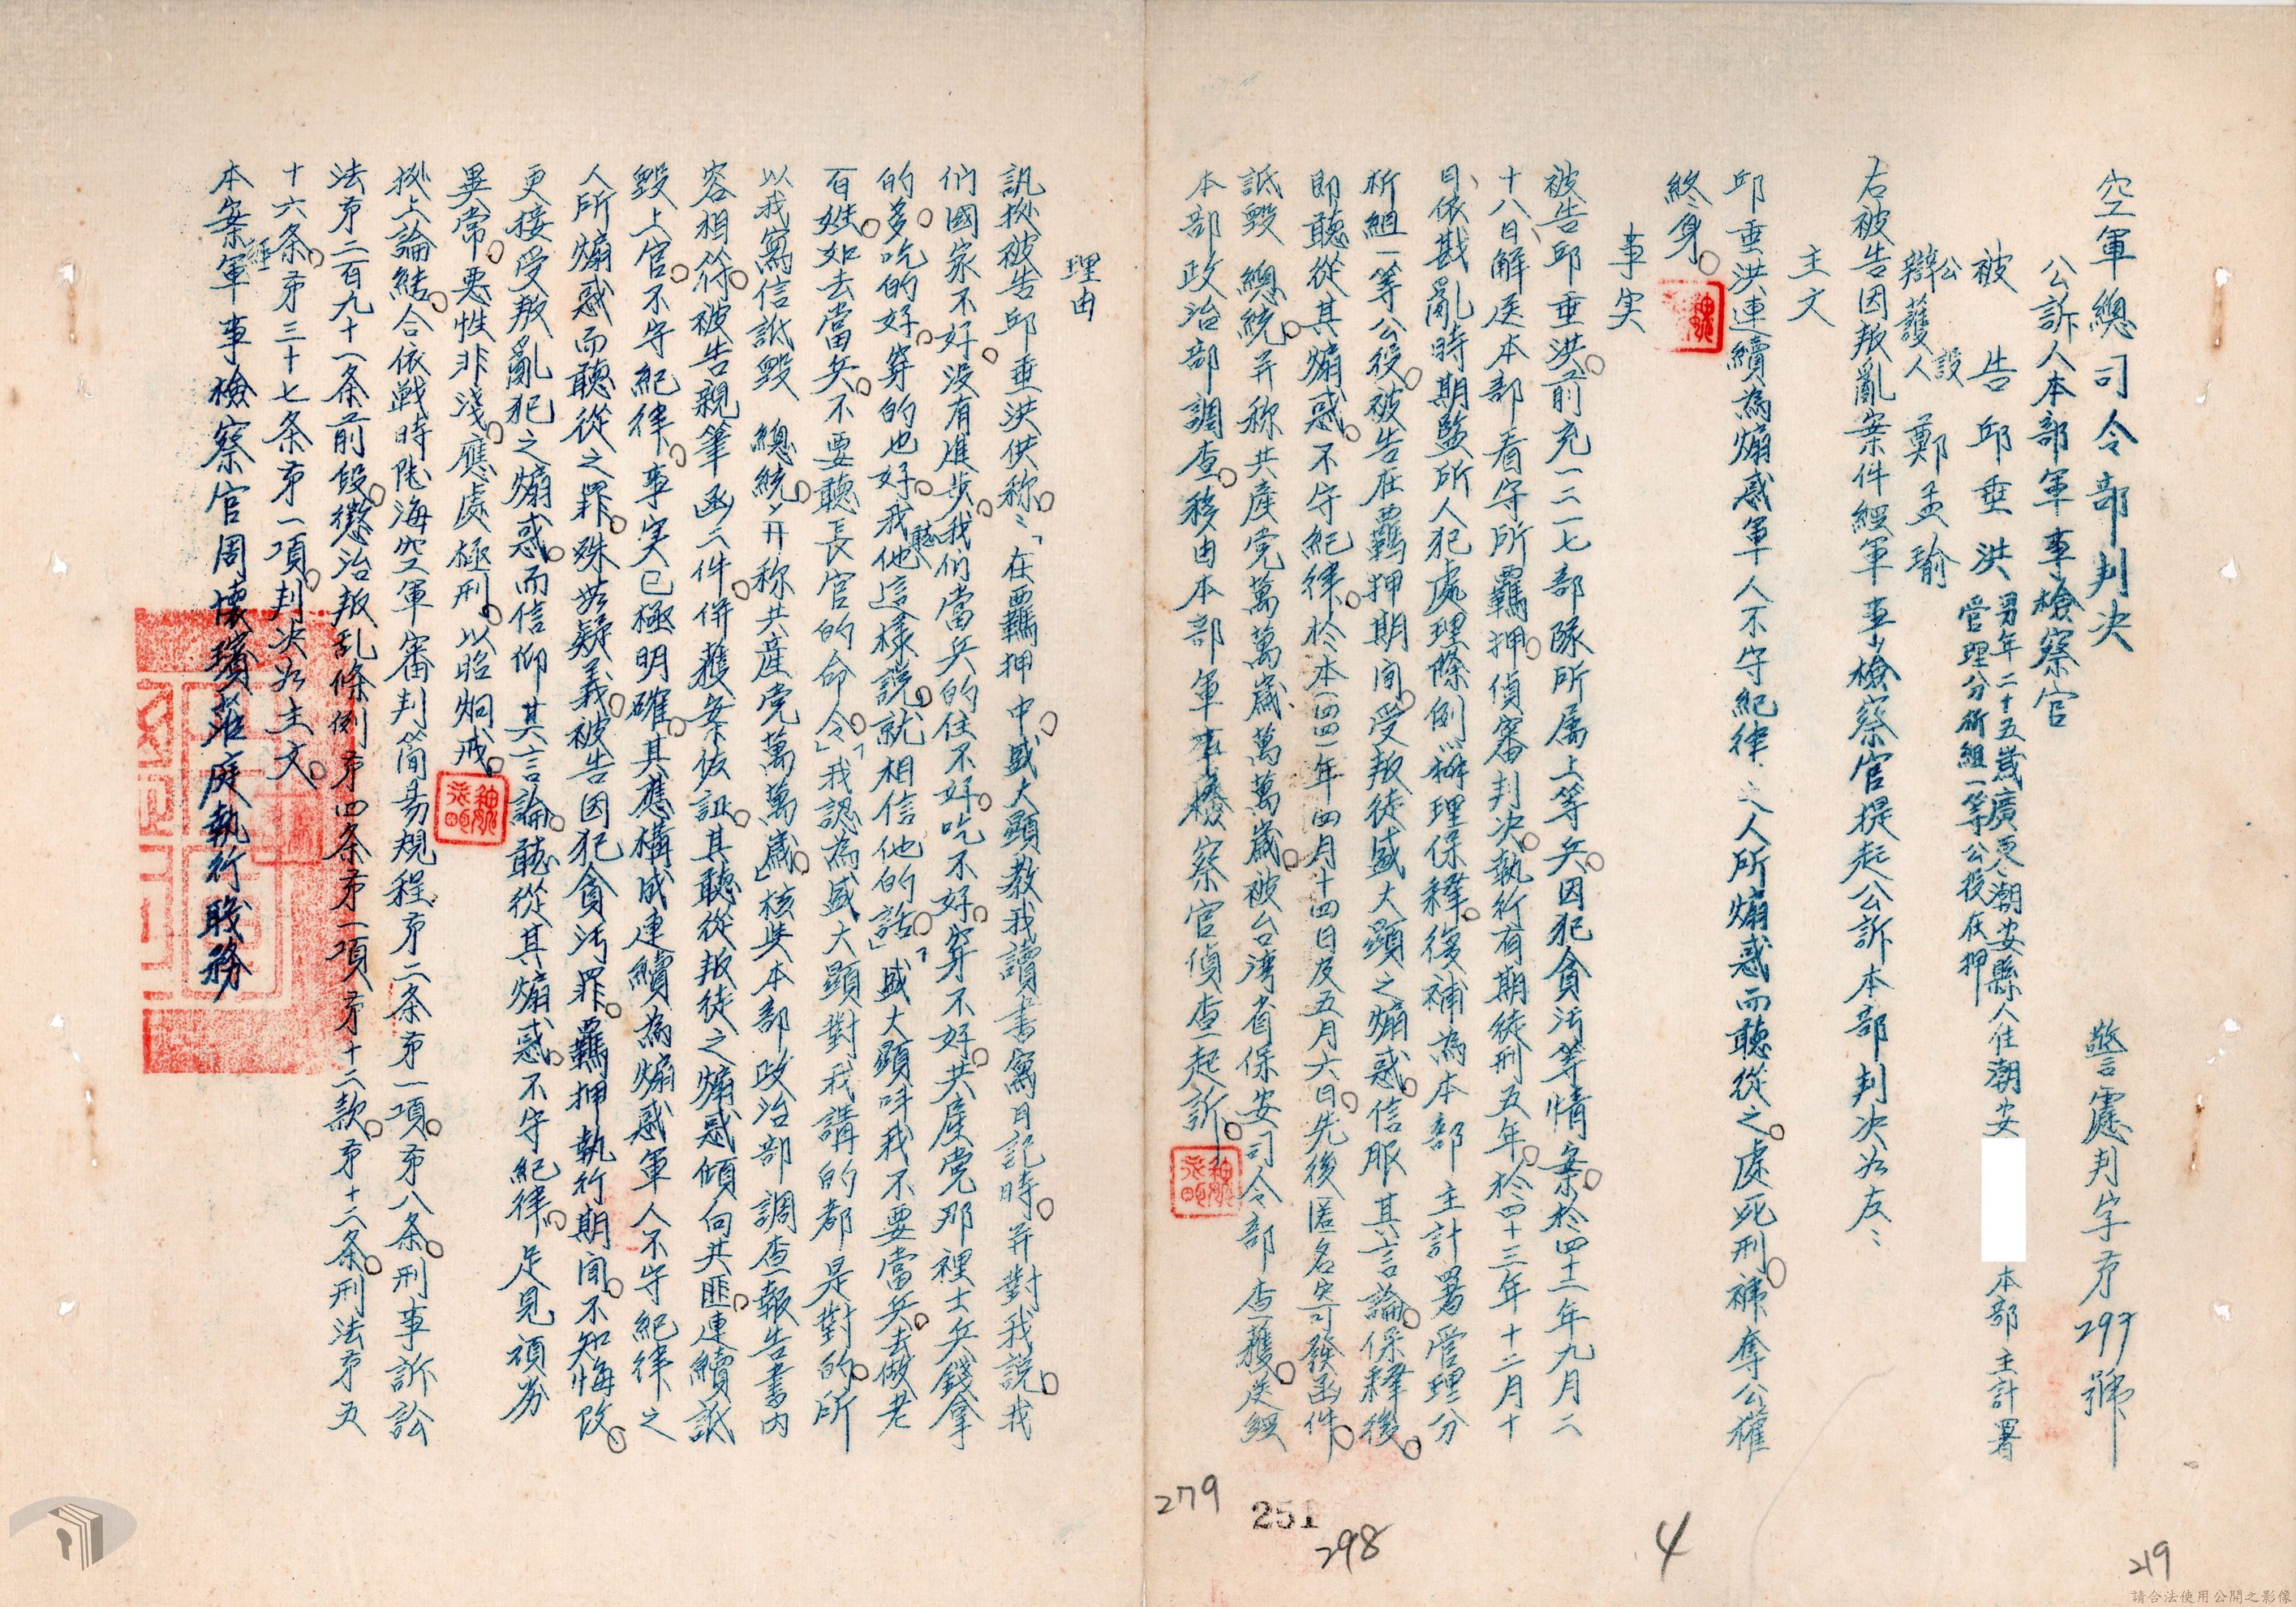 空軍總司令部判決
警處判字第299號
公訴人本部軍事檢察官
被告邱垂洪男年二十五歲廣東潮安縣人住潮安 本部主計署
管理分析組一等公役在押
公設辯護人鄭孟瑜
右被告因叛亂案件經軍事檢察官提起公訴本部判決如左:
主文
邱垂洪連續為煽惑軍人不守紀律之人所煽惑而聽從之。處死刑。褫奪公權
終身。
事实
被告邱垂洪。前充一二一七部隊所属上等兵。因犯貪污等情案。於四十一年九月二
十八日、解送本部看守所羈押。偵審判决。執行有期徒刑五年。於四十三年十二月十
日、依戡亂時期監所人犯處理條例辦理保釋。後補為本部主計署管理分
析組一等公役。被告在羈押期间。受叛徒盛大顕之煽惑。信服其言論。保釋後。
即聽從其煽惑。不守紀律。於本(四四)年四月十四日及五月六日。先後匿名寄發函件。
詆毀 總統。并称共產党萬萬歲萬萬歲。被台湾省保安司令部查獲。送經
本部政治部調查。移由本部軍事檢察官偵查起訴。
理由
訊拠被告邱垂洪供称。:「在羈押中。盛大顕教我讀書寫日記時。并對我說。我
们國家不好。沒有進步。我们當兵的住不好。吃不好。穿不好。共產党那裡士兵錢拿
的多。吃的好。穿的也好。我聽他這樣說。就相信他的話。」「盛大顕叫我不要當兵。去做老
百姓。如去當兵。不要聽長官的命令。」「我認為盛大顕對我講的都是對的。所
以我寫信詆毀 總統。并称共產党萬萬歲。」核與本部政治部調查報告書内
容相符。被告親筆函二件。併獲案佐証。其聽從叛徒之煽惑傾向共匪。連續詆
毀上官。不守紀律。事实已極明確。其應構成連續為煽惑軍人不守紀律之
人所煽惑而聽從之罪。殊無疑義。被告因犯貪污罪。羈押執行期间。不知悔改。
更接受叛亂犯之煽惑。而信仰其言論。聽從其煽惑。不守紀律。足見頑劣
異常。惡性非淺。應處極刑。以昭炯戒。
拠上論結。合依戰時陸海空軍審判簡易規程第二条第一項。第八条。刑事訴訟
法第二百九十一条前段。懲治叛乱條例第四条第一項第十二款。第十二条。刑法第五
十六条。第三十七条第一項。判决如主文。
本案經軍事檢察官周懷璸蒞庭執行職務
279
251
298
4
219
請合法使用公開之影像